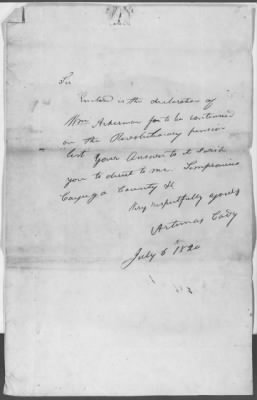 Sir
Enclosed is the declaration of
Wm Ackerman for to be continued
on the Revolutionary pension
list Your Answer to it I wish
you to direct to me. Sempronius
Cayuga County
Very respectfully yours
Artemas Cady
July 6th 1820